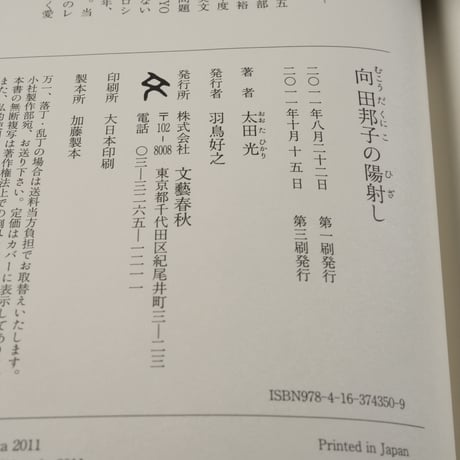 向田邦子の陽射し
むこうだくにこ ひざ
二〇一一年八月二十二日 第一刷発行
二〇一一年十月十五日 第三刷発行
著者 太田光
おおた ひかり
発行者 羽鳥好之
発行所 株式会社 文藝春秋
〒102-8008 東京都千代田区紀尾井町三―二三
電話 〇三―三二六五―一二一一
印刷所 大日本印刷
製本所 加藤製本
万一、落丁・乱丁の場合は送料当方負担でお取替えいたします。
小社製作部宛、お送り下さい。定価はカバーに表示してあり
本書の無断複写は著作権法上での例外
ISBN978-4-16-374350-9
2011
Printed in Japan